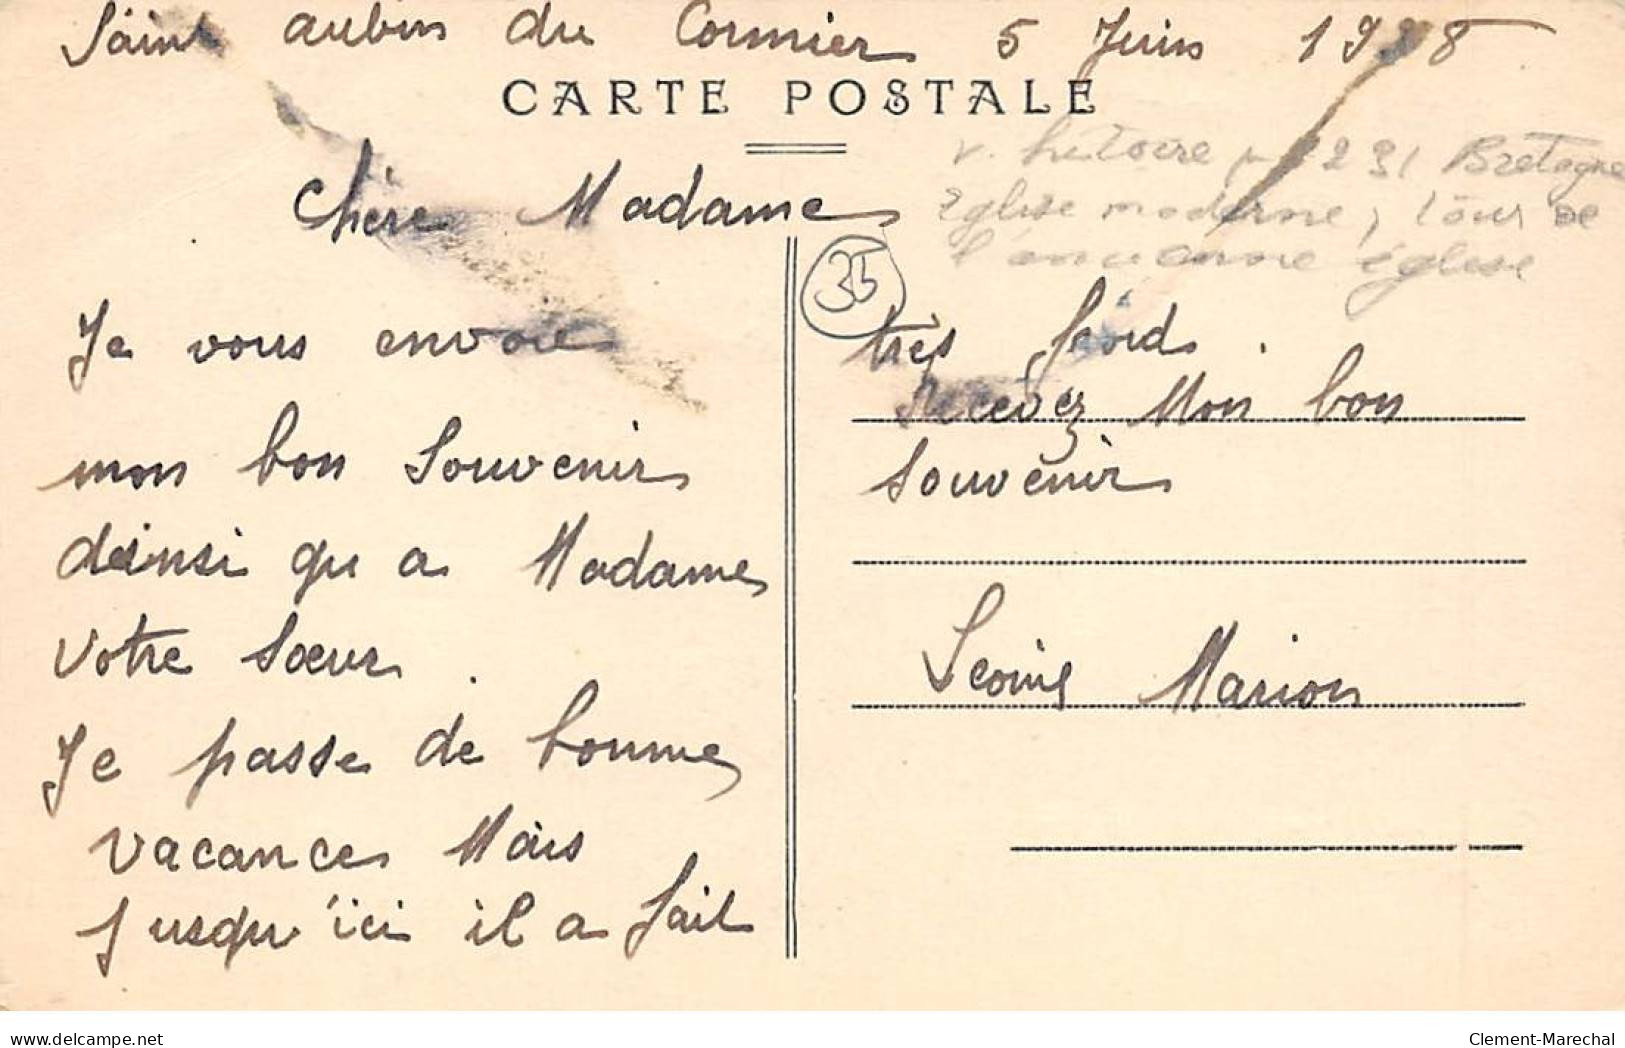 Saint aubin du Cormier 5 Juin 1938
CARTE POSTALE
v. histoire 231 Bretagne
Eglise moderne, tour de
l'ancienne église
Chère Madame
35
Je vous envoie
mon bon Souvenir
dainsi qu a Madame
votre Sœur.
Je passe de bonne
vacances Mais
Jusqu'ici il a fait
très froid.
Recevez Mon bon
Souvenir
Marion
delcampe.net
Clement-Marechal